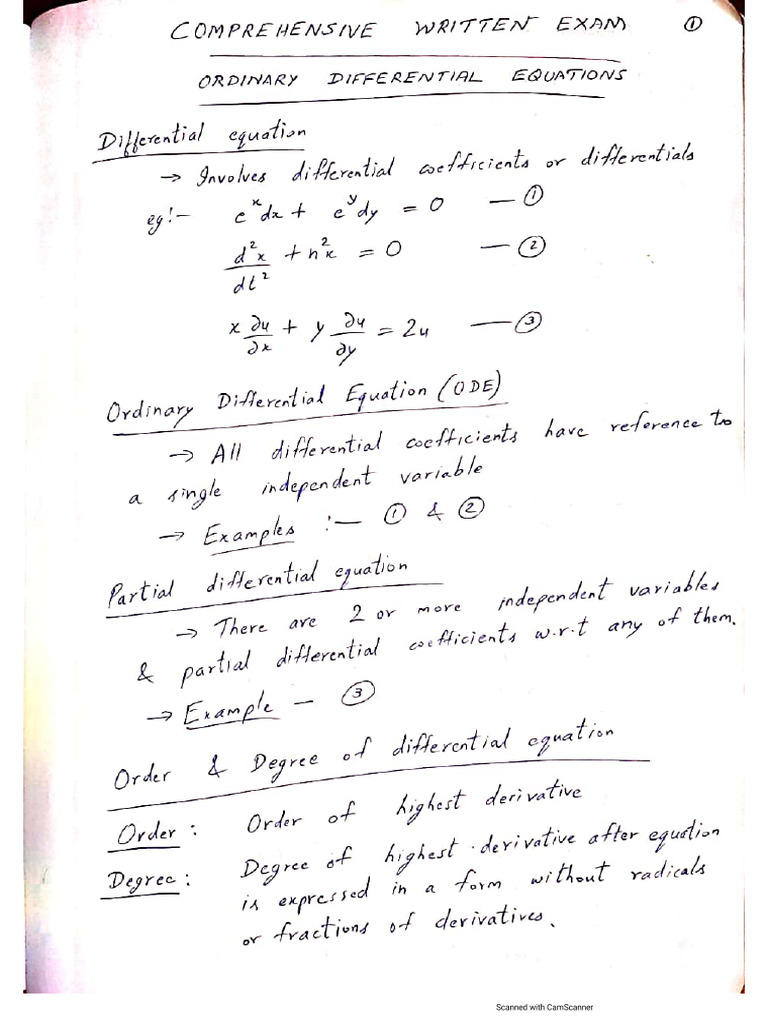 COMPREHENSIVE WRITTEN EXAM ①
ORDINARY DIFFERENTIAL EQUATIONS
Differential equation
→ Involves differential coefficients or differentials
eg:- e^x dx + e^y dy = 0 — ①
d²x/dt² + n²x = 0 — ②
x ∂u/∂x + y ∂u/∂y = 2u — ③
Ordinary Differential Equation (ODE)
→ All differential coefficients have reference to
a single independent variable
→ Examples :— ① & ②
Partial differential equation
→ There are 2 or more independent variables
& partial differential coefficients w.r.t any of them.
→ Example — ③
Order & Degree of differential equation
Order : Order of highest derivative
Degree : Degree of highest derivative after equation
is expressed in a form without radicals
or fractions of derivatives.
Scanned with CamScanner